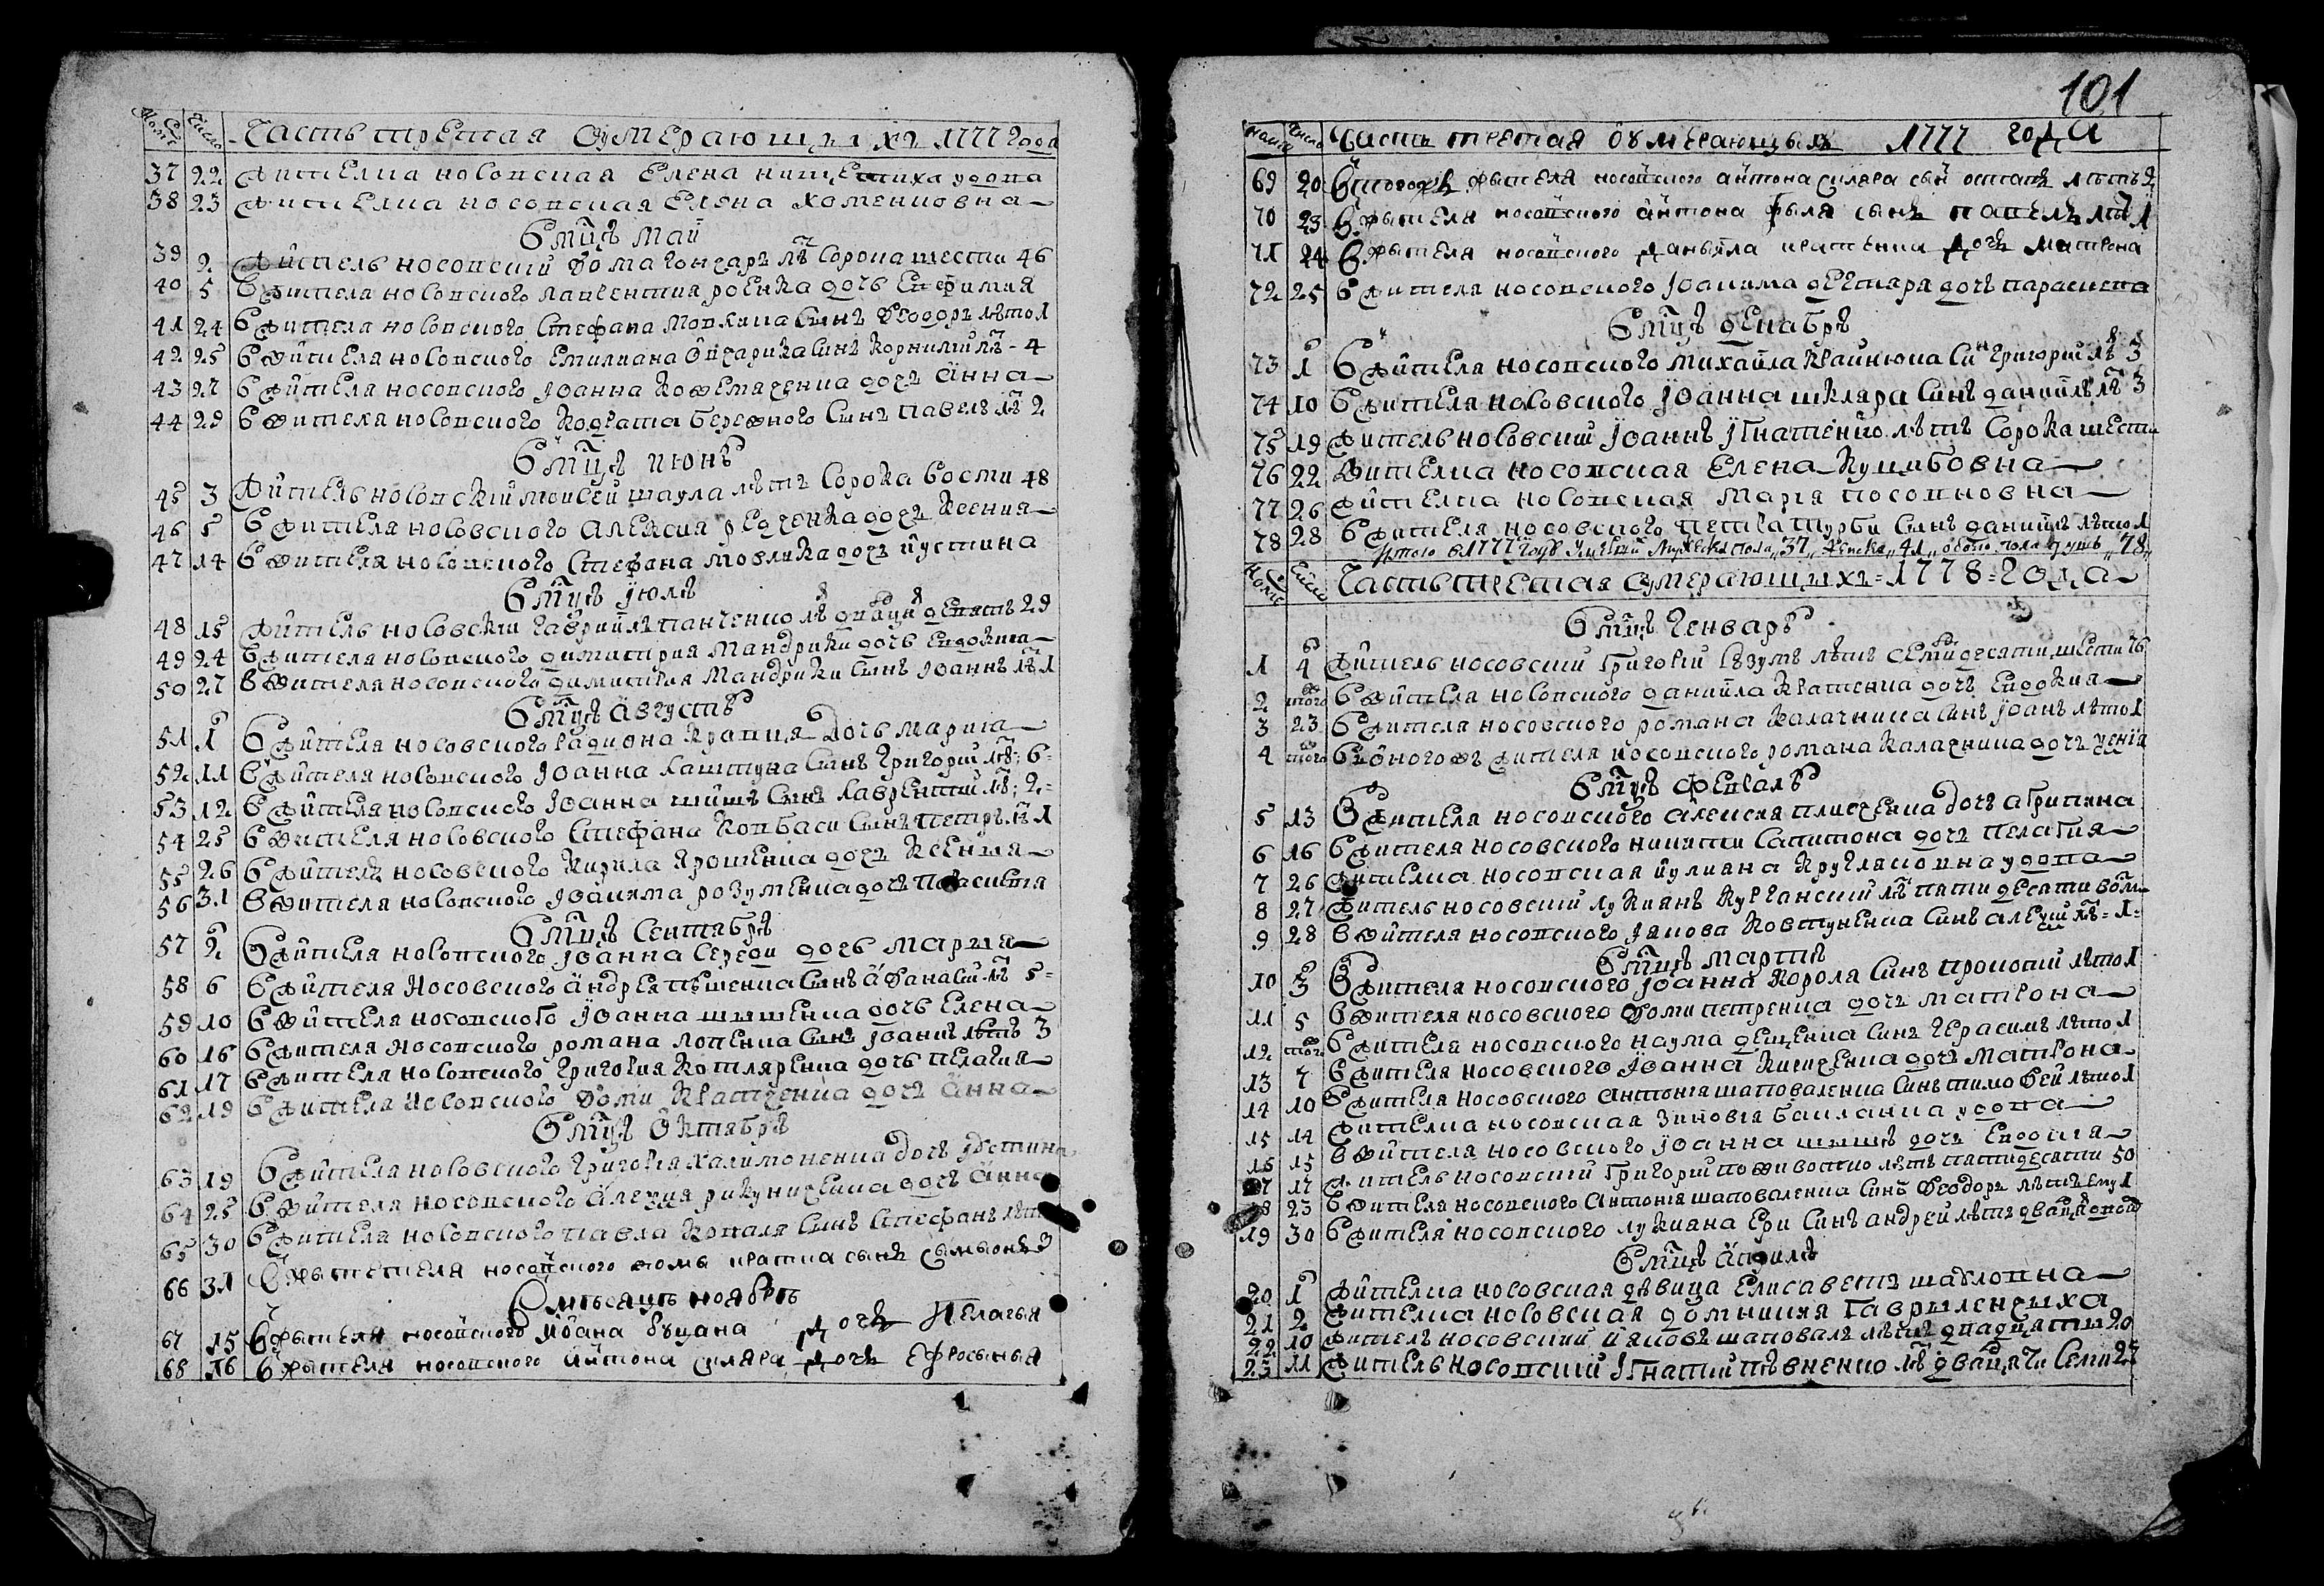 Часть третая о умераюшихъ 1777 года
37 22 Жителка носовская Елена вдова
38 23 Жителка носовская Елена Хоменковна
В мцѣ май
39 2 Житель носовский Фома Гончаръ лѣт сорока шести 46
40 5 В жителя носовского Лаврентия Роенка дочъ Евфимия
41 24 В жителя носовского Стефана Мовкина синъ Феодоръ лѣто 1
42 25 В жителя носовского Емилиана Овчарика синъ Корнилий лѣт 4
43 27 В жителя носовского Іоанна дочъ Анна
44 29 В жителя носовского Кодрата Бережного синъ Павелъ лѣт 2
В мцѣ июнѣ
45 3 Житель носовский Моисей Шаула лѣтъ сорока вости 48
46 5 В жителя носовского Алексия Редченка дочъ Ксения
47 14 В жителя носовского Стефана Мовлика дочъ Иустина
В мцѣ Іюлѣ
48 15 Житель носовский Гавриилъ Панченко лѣт двадця девять 29
49 24 В жителя носовского Димитрия Мандрики дочъ Евдокиа
50 27 В жителя носовского Димитрия Мандрики синъ Іоаннъ лѣт 1
В мцѣ Августѣ
51 1 В жителя носовского Радиона Крапия дочъ Мариа
52 11 В жителя носовского Іоанна Каштуна синъ Григорий лѣт: 6
53 12 В жителя носовского Іоанна Шишѣ синъ Лаврентий лѣт: 2
54 25 В жителя носовского Стефана Ковбаси синъ Петръ лѣт 1
55 26 В жителя носовского Кирила Ярошенка дочъ Ксения
56 31 В жителя носовского Іоакима Розуменка дочъ Параскевия
В мцѣ Сентабрѣ
57 2 В жителя носовского Іоанна Середи дочъ Мариа
58 6 В жителя носовского Андрея Пѣшенка синъ Афанасий лѣт 5
59 10 В жителя носовского Іоанна Шишенка дочъ Елена
60 16 В жителя носовского Романа Лопенка синъ Іоаннъ лѣтъ 3
61 17 В жителя носовского Григориа Котляренка дочъ Пелагия
62 19 В жителя носовского Фоми Кратченка дочъ Анна
В мцѣ Октябрѣ
63 19 В жителя носовского Григориа Халимоненка дочъ Іустина
64 25 В жителя носовского Алекия дочъ Анна
65 30 В жителя носовского Павла Коваля синъ Стефанъ
66 31 В жытеля носовского сынъ Сымыонъ 3
В мѣсяцѣ ноябрѣ
67 15 В жытеля носовского Иоана Буцана дочъ Пелагыя
68 16 В жытеля носовского Антона Скляра дочъ Ефросыныя
101
Часть третая о умераюцыхъ 1777 года
69 20 В тогожъ жытеля носовского Антона Скляра сын Остапъ лѣтъ 2
70 23 В жытеля носовского Антона сынъ Павелъ лѣт 1
71 24 В жытеля носовского Даныила Кратенка дочъ Матрона
72 25 В жителя носовского Іоакима Дегтяра дочъ Параскева
В мцѣ декабрѣ
73 1 В жителя носовского Михаила Крайнюка син Григорий лѣт 3
74 10 В жителя носовского Іоанна Шкляра синъ Даниилъ лѣт 3
75 19 Житель носовский Іоаннъ Ігнатенко лѣтъ сорока шести
76 22 Жителка носовская Елена Кулибовна
77 26 Жителка носовская Мариа Носовновна
78 28 В жителя носовского Петра Турби синъ Даниилъ лѣто 1
Итого в 1777 годѣ умерший мужеска пола „37„ женска „41„ обоего пола душъ „78„
Часть третая о умераюшихъ 1778 года
В мцѣ Генварѣ
1 4 Житель носовский Григорий лѣтъ семидесати шести 76
2 того В жителя носовского Даниила Кратенка дочъ Евдокиа
3 23 В жителя носовского Романа Калачника синъ Іоанъ лѣто 1
4 того В оногожъ жителя носовского Романа Калачника дочъ
В мцѣ Февралѣ
5 13 В жителя носовского Алексия Плисченка дочъ Агрипина
6 16 В жителя носовского Никити Сапитона дочъ Пелагия
7 26 Жителка носовская Иулиана Кругляковна удова
8 27 Житель носовский Лукианъ Курганский лѣт пятидесяти
9 28 В жителя носовского Іакова Ковтуненка синъ Алексий лѣт 1
В мцѣ Мартѣ
10 3 В жителя носовского Іоанна Корола синъ Прокопий лѣто 1
11 5 В жителя носовского Фоми Петренка дочъ Матрона
12 того В жителя носовского Наума Деценка синъ Герасимъ лѣто 1
13 7 В жителя носовского Іоанна Кириченка дочъ Матрона
14 10 В жителя носовского Антониа Шаповаленка синъ Тимофей лѣто 1
15 14 Жителка носовская Зиновіа Бакланка удова
16 15 В жителя носовского Іоанна Шишѣ дочъ Евдокия
17 17 Житель носовский Григорий лѣтъ пятидесяти 50
18 23 В жителя носовского Антониа Шаповаленка синъ Феодоръ лѣтъ ему 1
19 30 В жителя носовского Лукиана Ери синъ Андрей лѣтъ
В мцѣ Априлѣ
20 1 Жителка носовская дѣвица Елисаветъ Шабловна
21 2 Жителка носовская Домникия Гаврыленчыха
22 10 Житель носовский Иаковъ Шаповалъ лѣтъ двадцяти 20
23 11 Житель носовский Ігнатий Пѣвненко лѣт двайцати семи 27